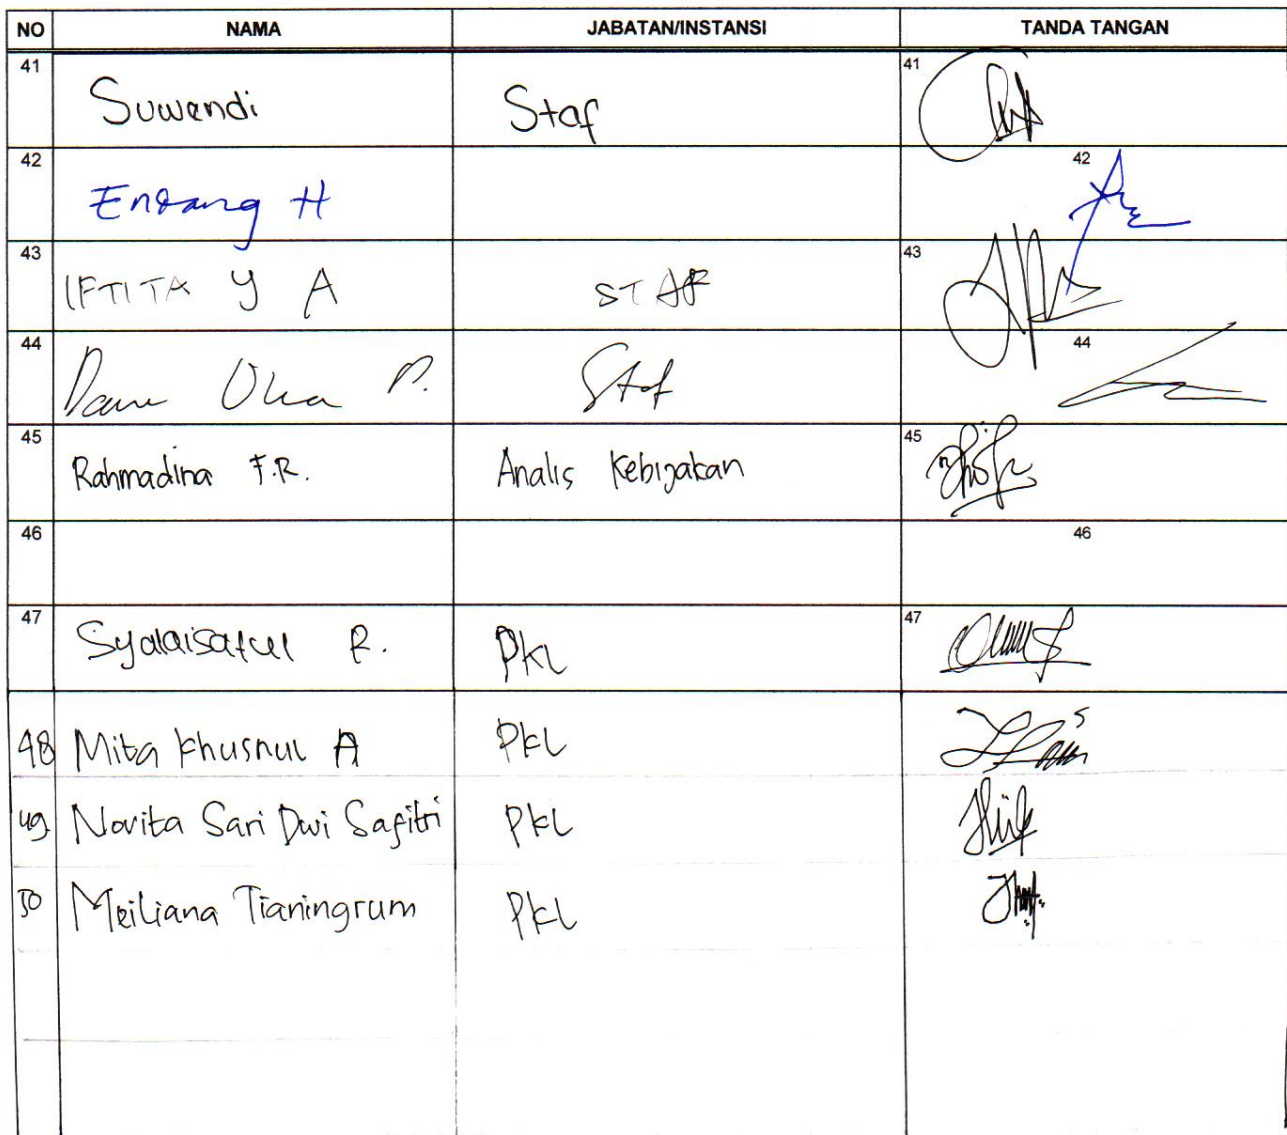 NO NAMA JABATAN/INSTANSI TANDA TANGAN
41 Suwendi Staf 41
42 Endang H 42
43 IFTITA Y A STAF 43
44 Oka P. Staf 44
45 Rahmadina F.R. Analis Kebijakan 45
46 46
47 R. PKL 47
48 Mita Khusnul A PKL
49 Novita Sari Dwi Safitri PKL
50 Meiliana Tianingrum PKL